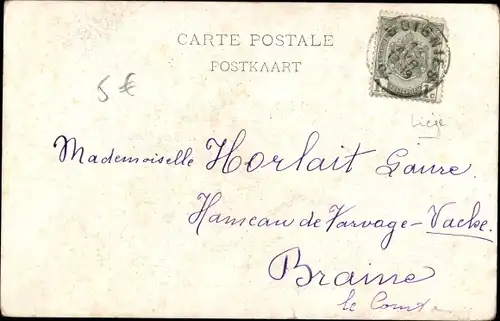 CARTE POSTALE
POSTKAART
SOIGNIES
5 €
Liège
Mademoiselle Horlait Laure.
Hameau de Varvage-Vache.
Braine
le Comte